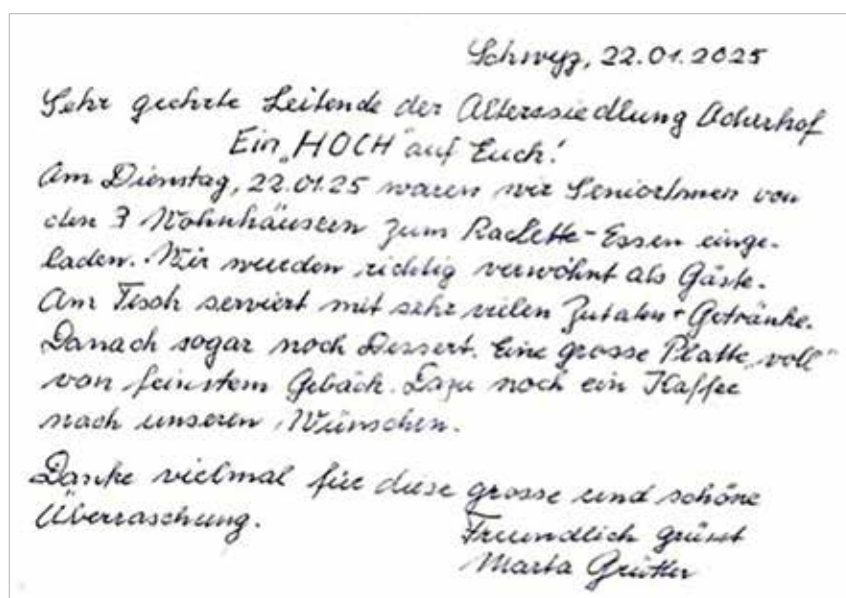 Schwyz, 22.01.2025
Sehr geehrte Leitende der Alterssiedlung Acherhof
Ein „HOCH" auf Euch!
Am Dienstag, 22.01.25 waren wir SeniorInnen von
den 3 Wohnhäusern zum Raclette-Essen einge-
laden. Wir wurden richtig verwöhnt als Gäste.
Am Tisch serviert mit sehr vielen Zutaten + Getränke.
Danach sogar noch Dessert. Eine grosse Platte „voll"
von feinstem Gebäck. Dazu noch ein Kaffee
nach unseren Wünschen.
Danke vielmal für diese grosse und schöne
Überraschung.
Freundlich grüsst
Marta Grütter